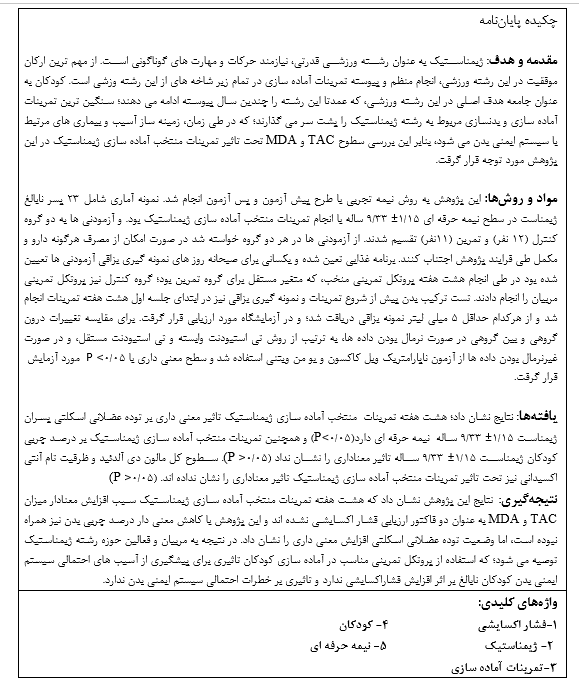 چکیده پایان‌نامه
مقدمه و هدف: ژیمناستیک به عنوان رشته ورزشی قدرتی، نیازمند حرکات و مهارت های گوناگونی است. از مهم ترین ارکان
موفقیت در این رشته ورزشی، انجام منظم و پیوسته تمرینات آماده سازی در تمام زیر شاخه های از این رشته وزشی است. کودکان به
عنوان جامعه هدف اصلی در این رشته ورزشی، که عمدتا این رشته را چندین سال پیوسته ادامه می دهند؛ سنگین ترین تمرینات
آماده سازی و بدنسازی مربوط به رشته ژیمناستیک را پشت سر می گذارند؛ که در طی زمان، زمینه ساز آسیب و بیماری های مرتبط
با سیستم ایمنی بدن می شود، بنابر این بررسی سطوح TAC و MDA تحت تاثیر تمرینات منتخب آماده سازی ژیمناستیک در این
پژوهش مورد توجه قرار گرقت.
مواد و روش‌ها: این پژوهش به روش نیمه تجربی با طرح پیش آزمون و پس آزمون انجام شد. نمونه آماری شامل ۲۳ پسر نابالغ
ژیمناست در سطح نیمه حرفه ای ۱/۱۵± ۹/۳۳ ساله با انجام تمرینات منتخب آماده سازی ژیمناستیک بود. و آزمودنی ها به دو گروه
کنترل (۱۲ نفر) و تمرین (۱۱نفر) تقسیم شدند. از آزمودنی ها در هر دو گروه خواسته شد در صورت امکان از مصرف هرگونه دارو و
مکمل طی فرایند پژوهش اجتناب کنند. برنامه غذایی تعین شده و یکسانی برای صبحانه روز های نمونه گیری بزاقی آزمودنی ها تعیین
شده بود در طی انجام هشت هفته پروتکل تمرینی منخب، که متغیر مستقل برای گروه تمرین بود؛ گروه کنترل نیز پروتکل تمرینی
مربیان را انجام دادند. تست ترکیب بدن پیش از شروع تمرینات و نمونه گیری بزاقی نیز در ابتدای جلسه اول هشت هفته تمرینات انجام
شد و از هرکدام حداقل ۵ میلی لیتر نمونه بزاقی دریافت شد؛ و در آزمایشگاه مورد ارزیابی قرار گرقت. برای مقایسه تغییرات درون
گروهی و بین گروهی در صورت نرمال بودن داده ها، به ترتیب از روش تی استیودنت وابسته و تی استیودنت مستقل، و در صورت
غیرنرمال بودن داده ها از آزمون ناپارامتریک ویل کاکسون و یو من ویتنی استفاده شد و سطح معنی داری با ۰/۰۵> P مورد آزمایش
قرار گرقت.
یافته‌ها: نتایج نشان داد؛ هشت هفته تمرینات منتخب آماده سازی ژیمناستیک تاثیر معنی داری بر توده عضلانی اسکلتی پسران
ژیمناست ۱/۱۵± ۹/۳۳ ساله نیمه حرفه ای دارد(۰/۰۵>P) و همچنین تمرینات منتخب آماده سازی ژیمناستیک بر درصد چربی
کودکان ژیمناست ۱/۱۵± ۹/۳۳ ساله تاثیر معناداری را نشان نداد (۰/۰۵< P). سطوح کل مالون دی آلدئید و ظرقیت تام آنتی
اکسیدانی نیز تحت تاثیر تمرینات آماده سازی ژیمناستیک تاثیر معناداری را نشان نداده اند. (۰/۰۵< P)
نتیجه‌گیری: نتایج این پژوهش نشان داد که هشت هفته تمرینات منتخب آماده سازی ژیمناستیک سبب افزایش معنادار میزان
TAC و MDA به عنوان دو فاکتور ارزیابی قشار اکسایشی نشده اند و این پژوهش با کاهش معنی دار درصد چربی بدن نیز همراه
نبوده است، اما وضعیت توده عضلانی اسکلتی افزایش معنی داری را نشان داد. در نتیجه به مربیان و فعالین حوزه رشته ژیمناستیک
توصیه می شود؛ که استفاده از پروتکل تمرینی مناسب در آماده سازی کودکان تاثیری برای پیشگیری از آسیب های احتمالی سیستم
ایمنی بدن کودکان نابالغ بر اثر افزایش قشاراکسایشی ندارد و تاثیری بر خطرات احتمالی سیستم ایمنی بدن ندارد.
واژه‌های کلیدی:
۱-فشار اکسایشی ۴- کودکان
۲- ژیمناستیک ۵- نیمه حرفه ای
۳-تمرینات آماده سازی